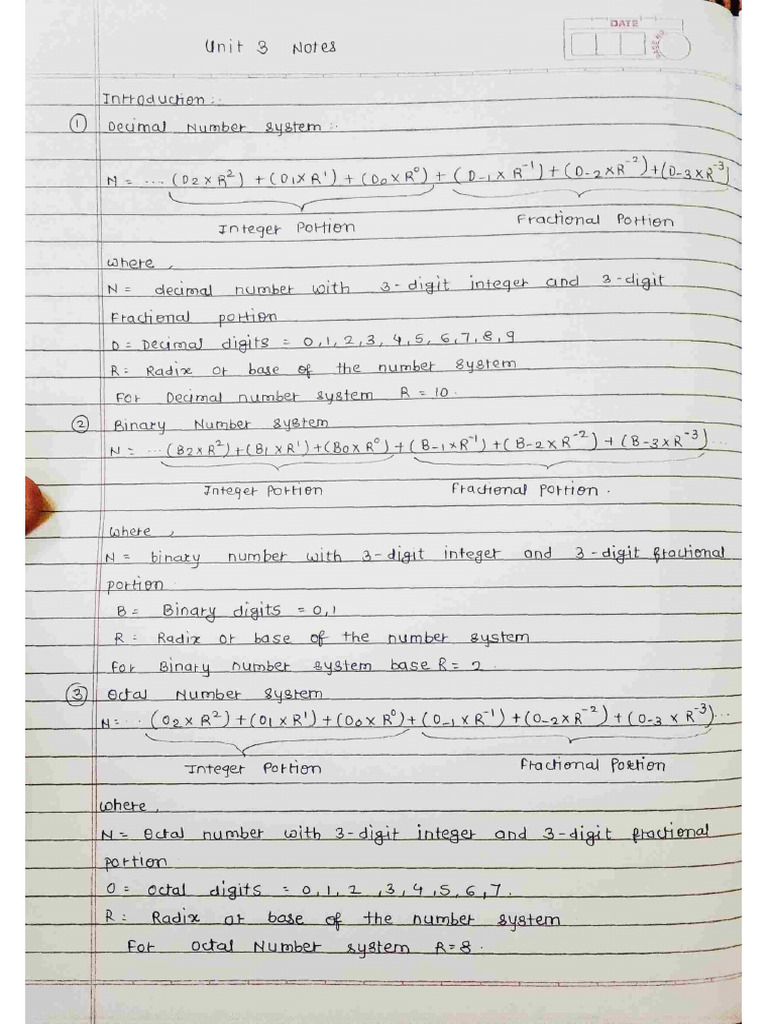 DATE
PAGE NO.
Unit 3 Notes
Introduction :.
① Decimal Number System :.
N = ... (D2 x R²) + (D1 x R¹) + (D0 x R⁰) + (D-1 x R⁻¹) + (D-2 x R⁻²) + (D-3 x R⁻³)
Integer Portion Fractional Portion
where,
N = decimal number with 3-digit integer and 3-digit
Fractional portion
D = Decimal digits = 0,1,2,3,4,5,6,7,8,9
R = Radix or base of the number system
For Decimal number system R = 10.
② Binary Number System
N = ... (B2 x R²) + (B1 x R¹) + (B0 x R⁰) + (B-1 x R⁻¹) + (B-2 x R⁻²) + (B-3 x R⁻³) ...
Integer Portion Fractional Portion.
where,
N = binary number with 3-digit integer and 3-digit fractional
portion.
B = Binary digits = 0,1
R = Radix or base of the number system
For Binary number system base R = 2.
③ Octal Number System
N = .. (O2 x R²) + (O1 x R¹) + (O0 x R⁰) + (O-1 x R⁻¹) + (O-2 x R⁻²) + (O-3 x R⁻³) ...
Integer Portion Fractional Portion
where,
N = Octal number with 3-digit integer and 3-digit fractional
portion
O = octal digits = 0,1,2,3,4,5,6,7.
R = Radix or base of the number system
For octal Number system R = 8.